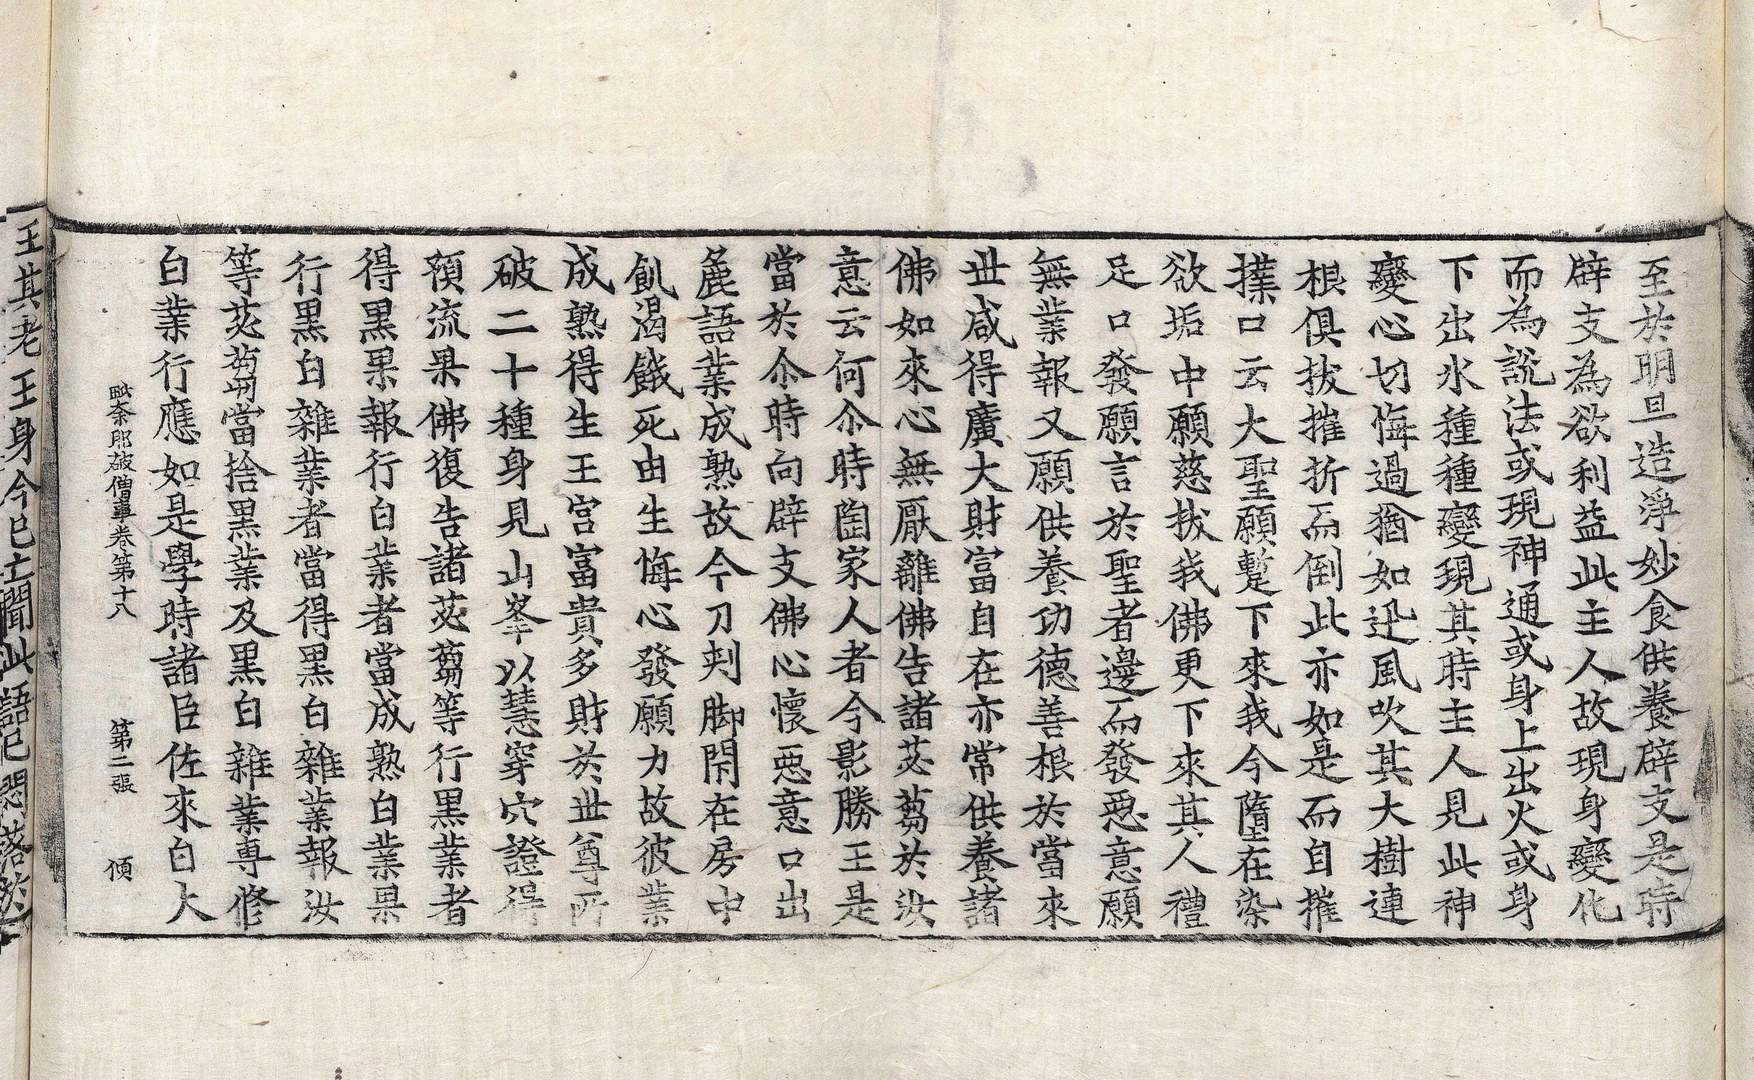 至於明旦造淨妙食供養辟支是時
辟支為欲利益此主人故現身變化
而為說法或現神通或身上出火或身
下出水種種變現其時主人見此神
變心切悔過猶如迅風吹其大樹連
根俱拔摧折而倒此亦如是而自摧
撲口云大聖願蹔下來我今墮在染
欲垢中願慈拔我佛更下來其人禮
足口發願言於聖者邊而發惡意願
無業報又願供養功德善根於當來
世咸得廣大財富自在亦常供養諸
佛如來心無厭離佛告諸苾芻於汝
意云何尒時陶家人者今影勝王是
當於尒時向辟支佛心懷惡意口出
麁語業成熟故今刀刾脚閇在房中
飢渴餓死由生悔心發願力故彼業
成熟得生王宮富貴多財於世尊所
破二十種身見山峯以慧穿穴證得
預流果佛復告諸苾芻等行黑業者
得黑果報行白業者當成熟白業果
行黑白雜業者當得黑白雜業報汝
等苾芻當捨黑業及黑白雜業專修
白業行應如是學時諸臣佐來白大
毗奈耶破僧事卷第十八 第二張 傾
王其老王身今已亡聞此語已悶落於